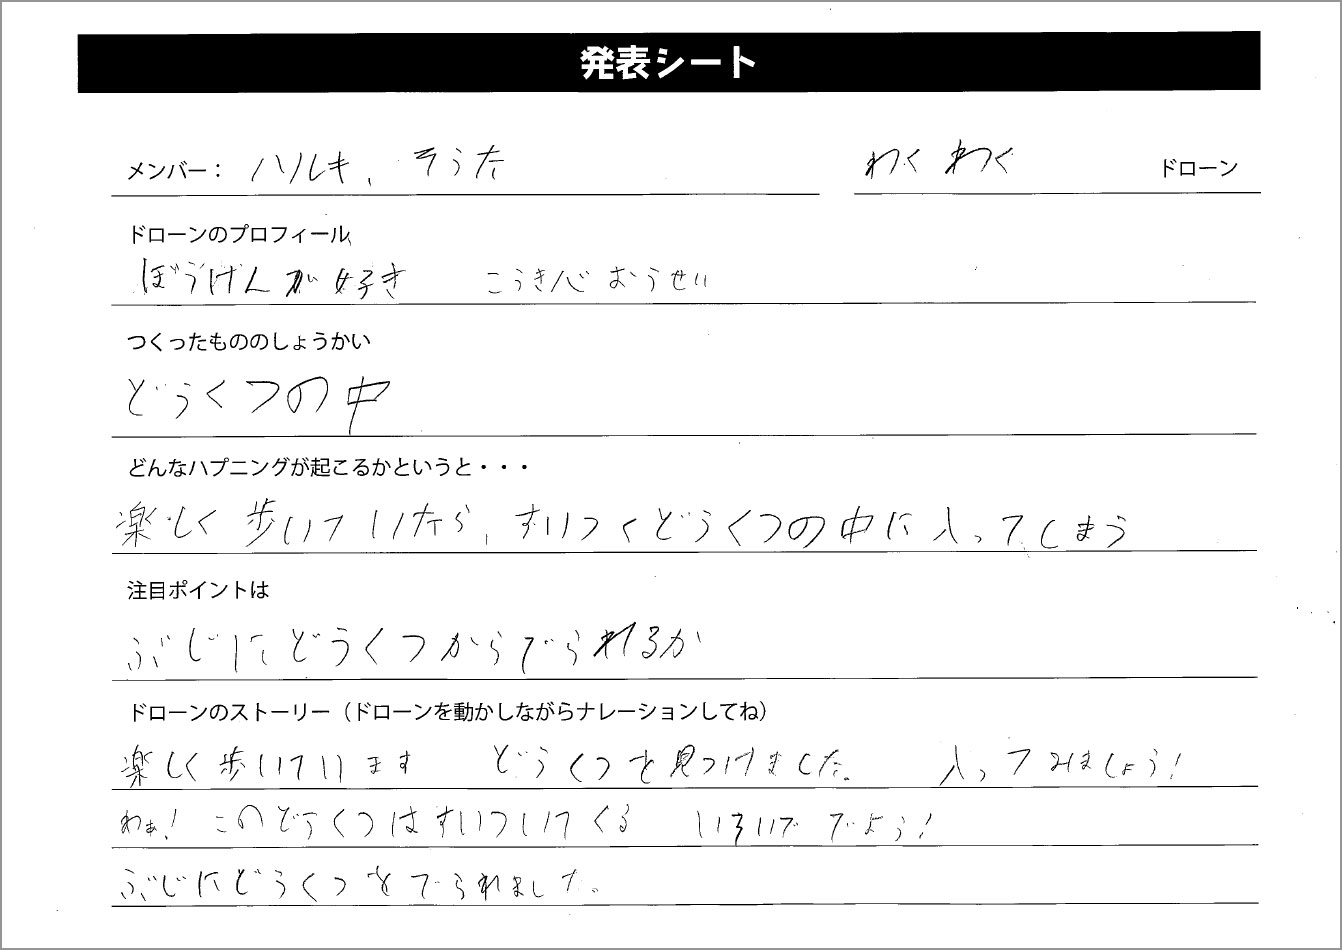 発表シート
メンバー： ハルキ、そうた わくわく ドローン
ドローンのプロフィール
ぼうけんが好き こうき心おうせい
つくったもののしょうかい
どうくつの中
どんなハプニングが起こるかというと・・・
楽しく歩いていたら、すいつくどうくつの中に入ってしまう
注目ポイントは
ぶじにどうくつからでられるか
ドローンのストーリー（ドローンを動かしながらナレーションしてね）
楽しく歩いています どうくつを見つけました。 入ってみましょう！
わぁ！ このどうくつはすいついてくる いそいででよう！
ぶじにどうくつをでられました。